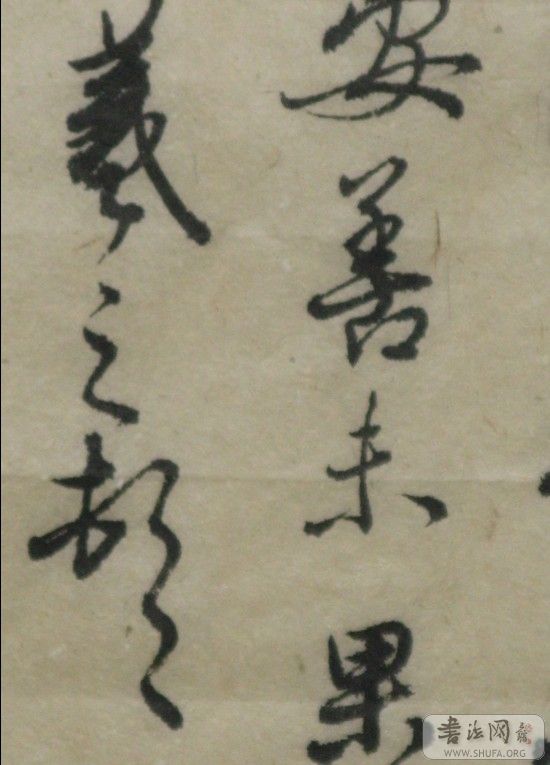 安善未果
羲之頓首
書法网
WWW.SHUFA.ORG